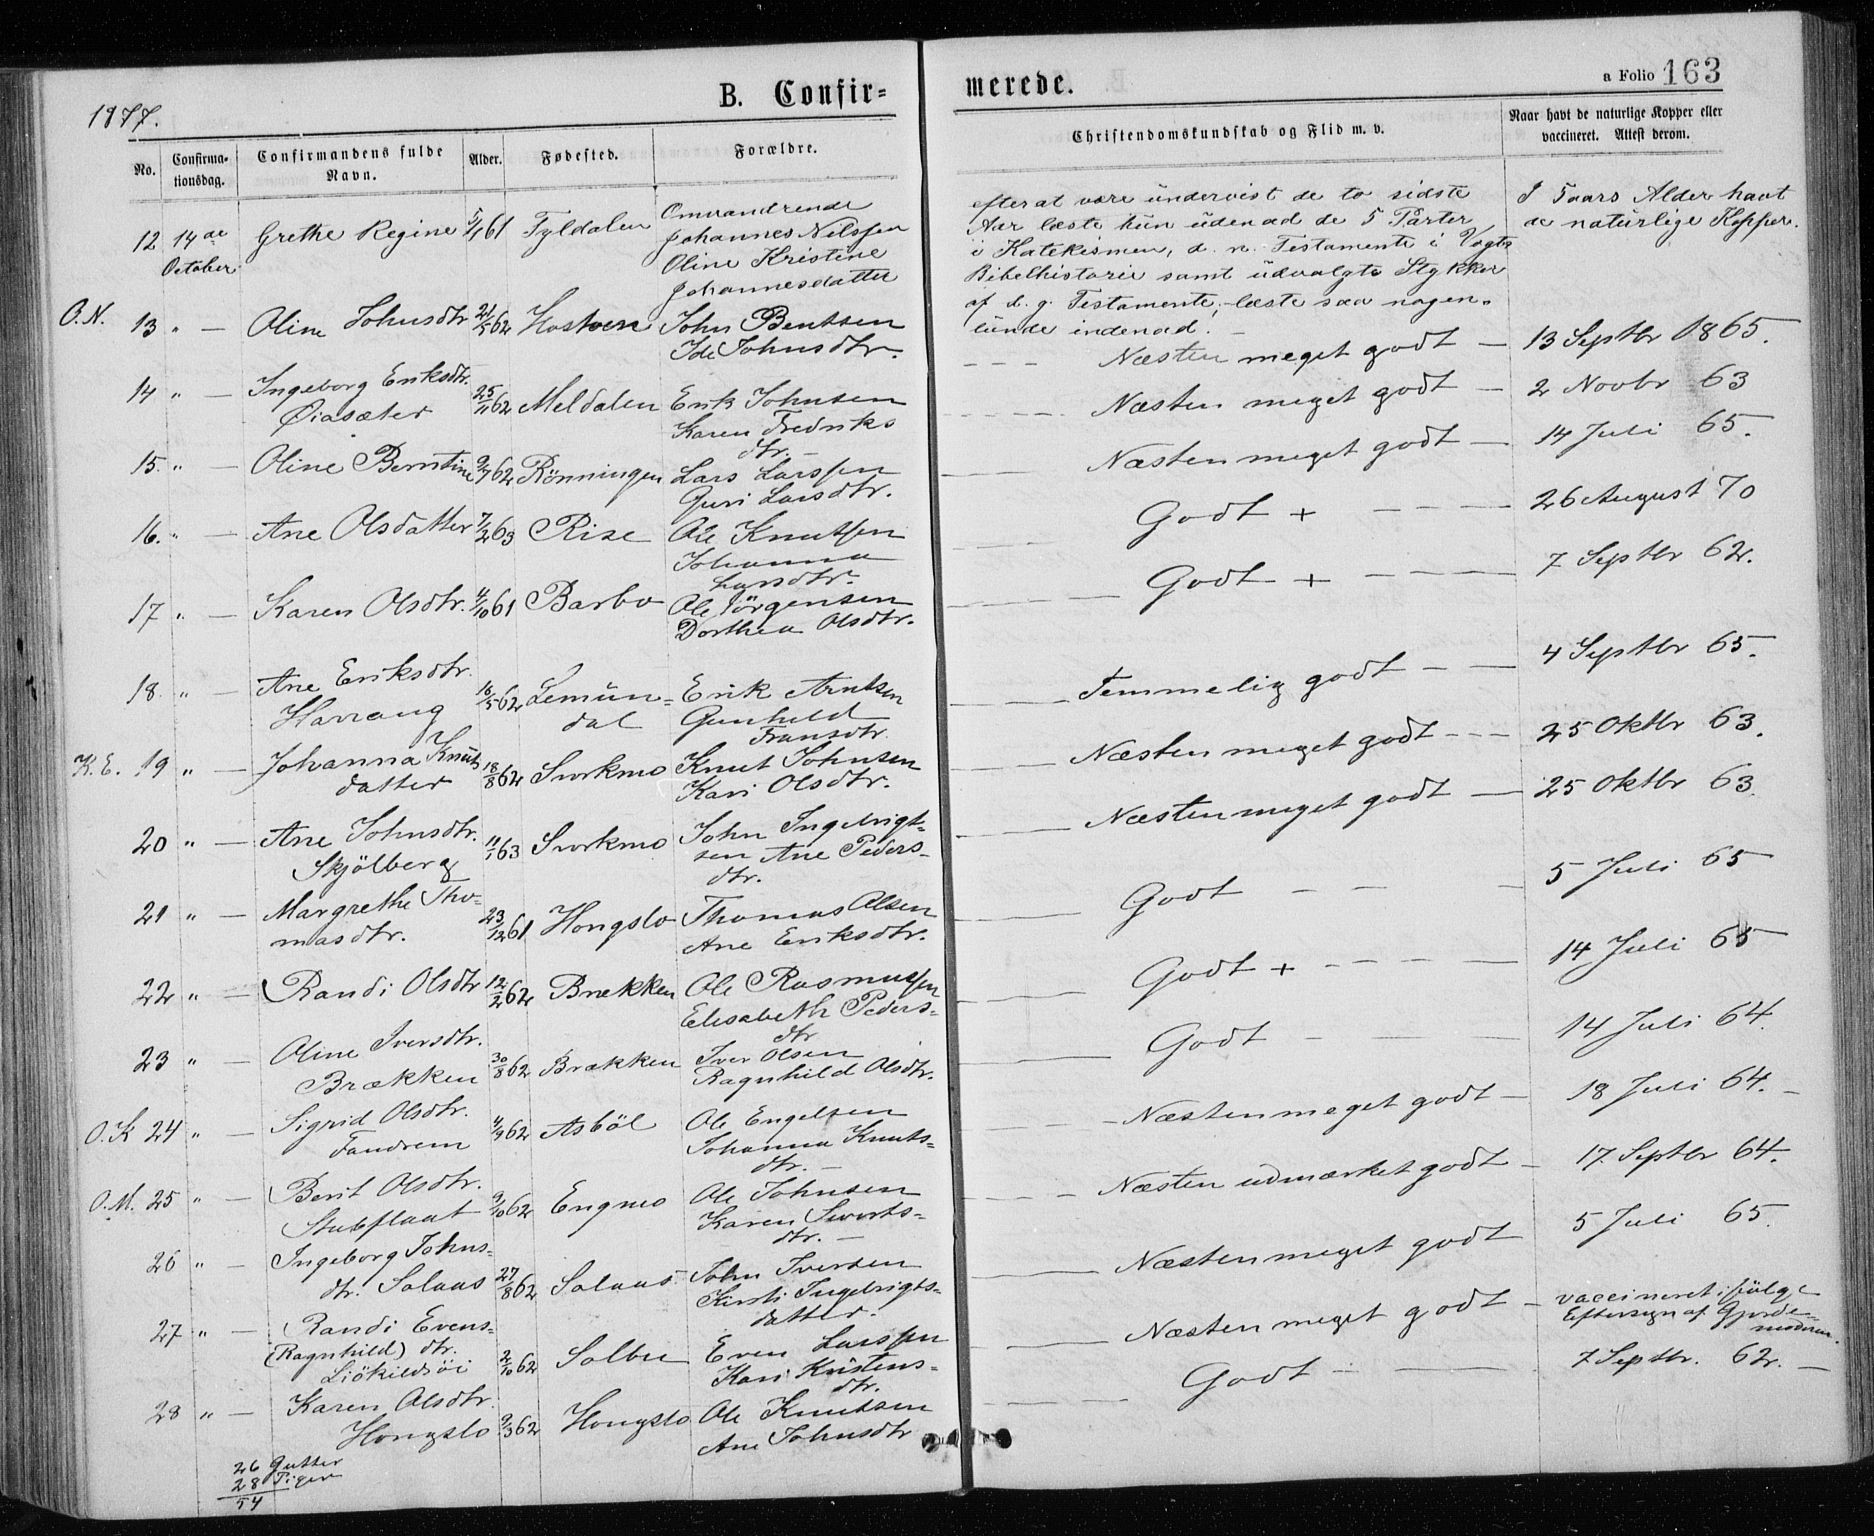 1877.
B. Confir=
merede.
a Folio 163
No.
Confirma-
tionsdag.
Confirmandens fulde
Navn.
Alder.
Fødested.
Forældre.
Christendomskundskab og Flid m. v.
Naar havt de naturlige Kopper eller
vaccineret. Attest derom.
12 14de October Grethe Regine 5/1 61 Tyldalen
Omvandrende
Johannes Nilssen
Oline Kristine
Johannesdatter
efter at være undervist de to sidste
Aar læste hun udenad de 5 Parter
i Katekismen, d. n. Testamente i Vogts
Bibelhistorie samt udvalgte Stykker
af d. g. Testamente, læste saa nogen-
lunde indenad.
I 5 aars Alder havt
de naturlige Kopper.
O.N. 13 „ — Oline Johnsdtr 21/5 62 Hostoen John Bentsen
Ide Johnsdtr.
Næsten meget godt — 13 Septbr 1865.
14 „ — Ingeborg Eriksdtr.
Øiasæter 25/11 62 Meldalen Erik Johnsen
Karen Fredriks
dtr. —
Næsten meget godt — 2 Novbr 63
15. „ — Oline Berntine 9/7 62 Rönningen Lars Larssen
Guri Larsdtr.
Næsten meget godt — 14 Juli 65.
16. „ — Ane Olsdatter 7/2 63 Rise Ole Knutssen
Johanna
Larsdtr.
Godt + — 26 August 70
17 „ — Karen Olsdtr. 4/10 61 Barbo Ole Jörgensen
Dorthea Olsdtr.
Godt + — 7 Septbr 62.
18. „ — Ane Eriksdtr.
Havrang 16/5 62 Lemün=
dal Erik Arntsen
Gunhild
Fransdtr
Temmelig godt — — 4 Septbr 65.
K.E. 19 „ — Johanna Knuts
datter 18/8 62 Svorkmo Knut Johnsen
Kari Olsdtr.
Næsten meget godt — 25 Oktbr 63.
20 „ — Ane Johnsdtr.
Skjölberg 11/1 63 Svorkmo John Ingebrigt-
sen Ane Peders-
dtr.
Næsten meget godt — 25 Oktbr 63
21 „ — Margrethe Tho-
masdtr. 23/12 61 Hongslo Thomas Olsen
Ane Eriksdtr.
Godt — — 5 Juli 65
22 „ — Randi Olsdtr 12/2 62 Brækken Ole Rasmussen
Elisabeth Peders-
dtr
Godt + — — 14 Juli 65
23 „ — Oline Iversdtr.
Brækken 30/8 62 Brækken Iver Olsen
Ragnhild Olsdtr.
Godt — — 14 Juli 64.
O.K 24 „ — Sigrid Olsdtr.
Fandrem 4/9 62 Asböl Ole Engelsen
Johanna Knuts-
dtr. —
Næsten meget godt — 18 Juli 64. —
O.M. 25 „ — Berit Olsdtr.
Stubflaat 9/10 62 Engmo Ole Johnsen
Karen Siverts-
dtr. —
Næsten udmærket godt — 17 Septbr 64.
26 „ — Ingeborg Johns-
dtr. Solaas 27/8 62 Solaas John Iversen
Kirsti Ingebrigts-
datter
Næsten meget godt 5 Juli 65.
27 „ — Randi Evens-
(Ragnhild) dtr.
Liökildsöi 2/10 62 Solbu Even Larssen
Kari Kristens-
dtr.
Næsten meget godt — vaccineret ifölge
Eftersyn af Gjorde-
moderen.
28 „ — Karen Olsdtr.
Hongslo 9/3 62 Hongslo Ole Knutsen
Ane Johnsdtr
Godt — 7 Septbr. 62. —
26 Gutter
28 Piger
54